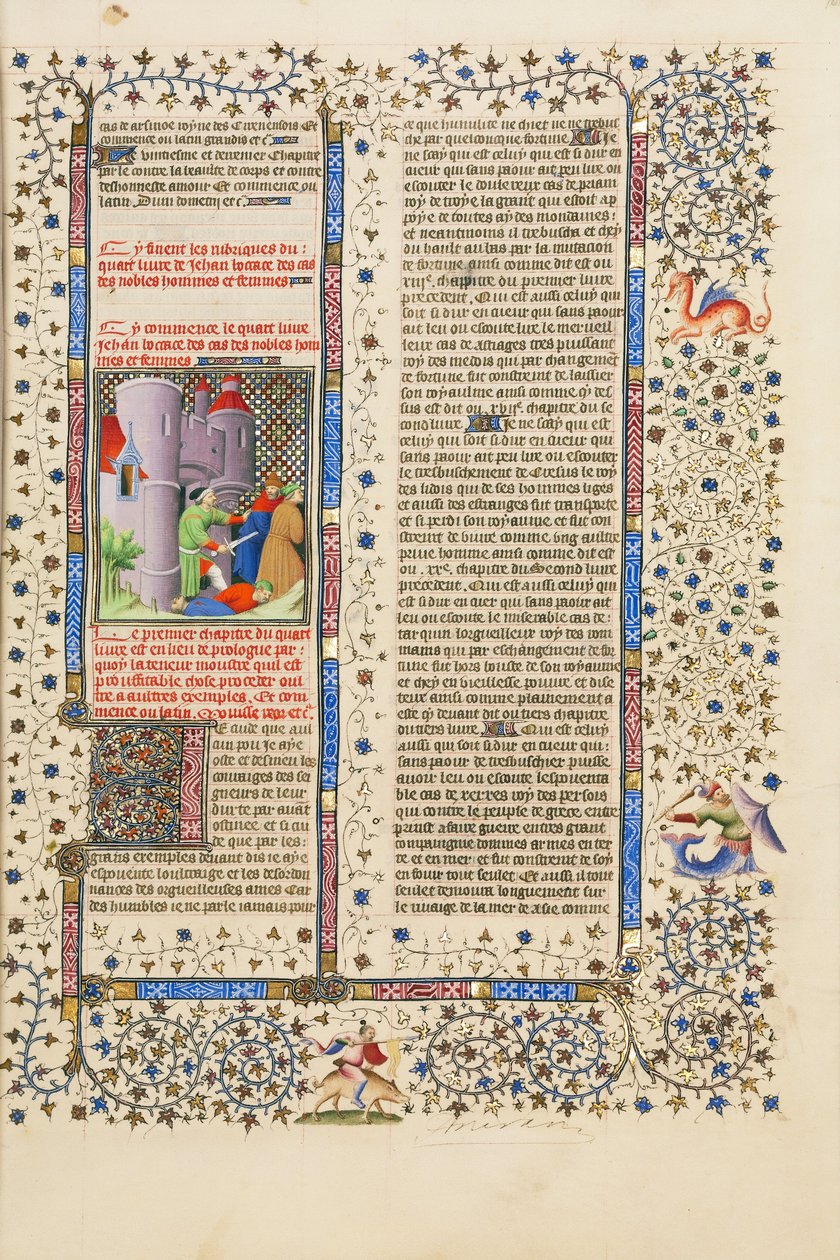 cas de arsinoe royne des Cirenensois Et
commence ou latin grandis et cͤ.
Le vintiesme et derrenier Chapitre
parle contre la beaulte de corps et contre
deshonneste amour Et commence ou
latin. Dum dometrii et cͤ.
Cy finent les rubriques du :
quart livre de Jehan boccace des cas
des nobles hommes et femmes
Cy commence le quart livre
Jehan boccace des cas des nobles hom
mes et femmes
Le premier chapitre du quart
livre est en lieu de prologue par :
quoy la teneur moustre quil est
prouffitable chose proceder oul
tre a aultres exemples. Et com
mence ou latin.
Je cuide que aul
cun pou Je aye
oste et desmeu les
couraiges des sei
gneurs de leur
durte par avant
ostinee et si cui
de que par les :
grans exemples devant dis ie aye
espovente loultraige et les desordon
nances des orgueilleuses ames Car
des humbles ie ne parle iamais pour
ce que humilite ne chet ne ne trebut
che par quelconque fortune. Je
ne scay qui est celuy qui est si dur en
cueur qui sans paour ait peu lire ou
escouter le douleureux cas de priam
roy de troye la grant qui estoit ap
poye de toutes aydes mondaines :
et neantmoins il trebuscha et chey
du hault au bas par la mutacion
de fortune ainsi comme dit est ou
xiiiᵉ. chapitre du premier livre
precedent. Qui est aussi celuy qui
soit si dur en cueur qui sans paour
ait leu ou escoute lire le merveil
leux cas de astiages tres puissant
roy des medois qui par changement
de fortune fut constreint de laissier
son royaulme ainsi comme dy des
sus est dit ou xviiᵉ. chapitre du se
cond livre. Je ne scay qui est
celuy qui soit si dur en cueur qui
sans paour ait peu lire ou escouter
le tresbuschement de Cresus le roy
des lidois qui de ses hommes liges
et aussi des estranges fut transporte
et si perdi son royaume et fut con
streint de vivre comme ung aultre
prive homme ainsi comme dit est
ou .xxᵉ. chapitre du Second livre
precedent. Qui est aussi celuy qui
est si dur en cuer qui sans paour ait
leu ou escoute le miserable cas de :
tarquin lorgueilleux roy des rom
mains qui par eschangement de for
tune fut hors bouste de son royaume
et chey en vieillesse povre et dise
teux ainsi comme plainement a
este cy devant dit ou tiers chapitre
du tiers livre. Qui est celuy
aussi qui soit si dur en cueur qui :
sans paour de tresbuschier puisse
avoir leu ou escoute lespoventa
ble cas de xerces roy des persois
qui contre le peuple de grece entre
prinst a faire guerre entres grant
compaignie dommes armes en ter
re et en mer et fut constreint de soy
en fouir tout seulet Et aussi il tout
seulet demoura longuement sur
le rivaige de la mer de asie comme